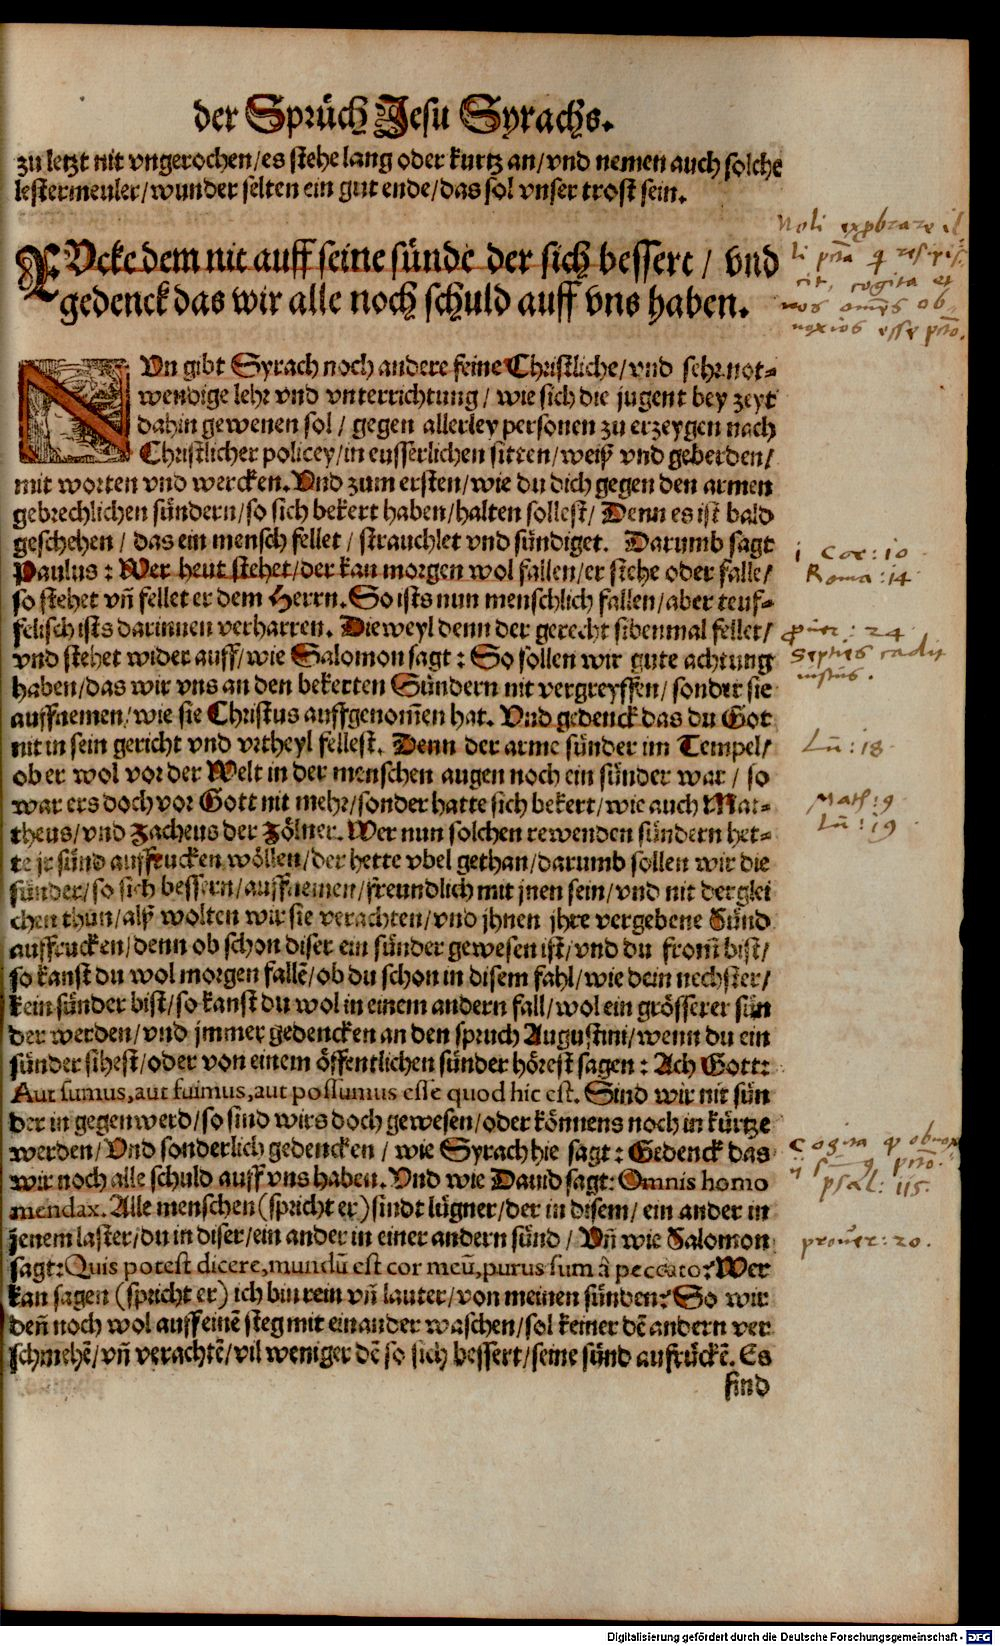 der Sprüch Jesu Syrachs.
zu letzt nit vngerochen/es stehe lang oder kurtz an/vnd nemen auch solche
lestermeuler/wunder selten ein gut ende/das sol vnser trost sein.
RVcke dem nit auff seine sünde der sich bessert/ vnd
gedenck das wir alle noch schuld auff vns haben.
Noli exprobrare il-
li
cit, cogita et
nos omẽs ob-
noxios esse
NVn gibt Syrach noch andere feine Christliche/vnd sehr not-
wendige lehr vnd vnterrichtung/ wie sich die jugent bey zeyt
dahin gewenen sol/ gegen allerley personen zu erzeygen nach
Christlicher policey/in eusserlichen sitten/weiß vnd geberden/
mit worten vnd wercken. Vnd zum ersten/wie du dich gegen den armen
gebrechlichen sündern/so sich bekert haben/halten sollest/ Denn es ist bald
geschehen/ das ein mensch fellet/ strauchlet vnd sündiget. Darumb sagt
Paulus: Wer heut stehet/der kan morgen wol fallen/er stehe oder falle/
so stehet vñ fellet er dem Herrn. So ists nun menschlich fallen/aber teuf-
felisch ists darinnen verharren. Dieweyl denn der gerecht sibenmal fellet/
vnd stehet wider auff/wie Salomon sagt: So sollen wir gute achtung
haben/das wir vns an den bekerten Sündern nit vergreyffen/ sonder sie
auffnemen/wie sie Christus auffgenom̃en hat. Vnd gedenck das du Got
nit in sein gericht vnd vrtheyl fellest. Denn der arme sünder im Tempel/
ob er wol vor der Welt in der menschen augen noch ein sünder war/ so
war ers doch vor Gott nit mehr/sonder hatte sich bekert/wie auch Mat-
theus/vnd Zacheus der Zölner. Wer nun solchen rewenden sündern het-
te jr sünd auffrucken wöllen/der hette vbel gethan/darumb sollen wir die
sünder/so sich bessern/auffnemen/freundlich mit jnen sein/vnd nit derglei
chen thun/alß wolten wir sie verachten/vnd jhnen jhre vergebene Sünd
auffrucken/denn ob schon diser ein sünder gewesen ist/vnd du from̃ bist/
so kanst du wol morgen fallẽ/ob du schon in disem fahl/wie dein nechster/
kein sünder bist/so kanst du wol in einem andern fall/wol ein grösserer sün
der werden/vnd jmmer gedencken an den spruch Augustini/wenn du ein
sünder sihest/oder von einem öffentlichen sünder hörest sagen: Ach Gott:
Aut sumus, aut fuimus, aut possumus esse quod hic est. Sind wir nit sün
der in gegenwerd/so sind wirs doch gewesen/oder könnens noch in kürtze
werden/ Vnd sonderlich gedencken/ wie Syrach hie sagt: Gedenck das
wir noch alle schuld auff vns haben. Vnd wie Dauid sagt: Omnis homo
mendax. Alle menschen (spricht er) sindt lügner/der in disem/ ein ander in
jenem laster/du in diser/ein ander in einer andern sünd/ Vñ wie Salomon
sagt: Quis potest dicere, mundũ est cor meũ, purus sum à peccato? Wer
kan sagen (spricht er) ich bin rein vñ lauter/von meinen sünden? So wir
deñ noch wol auff einẽ steg mit einander waschen/sol keiner dẽ andern ver
schmehẽ/vñ verachtẽ/vil weniger dẽ so sich bessert/seine sünd aufrückẽ. Es
sind
i Cor: 10
Roma: 14
24
Septies cadit
iustus.
Lũ: 18
Math: 9
Lũ: 19
Cogita
psal: 115.
prouer: 20.
Digitalisierung gefördert durch die Deutsche Forschungsgemeinschaft - DFG